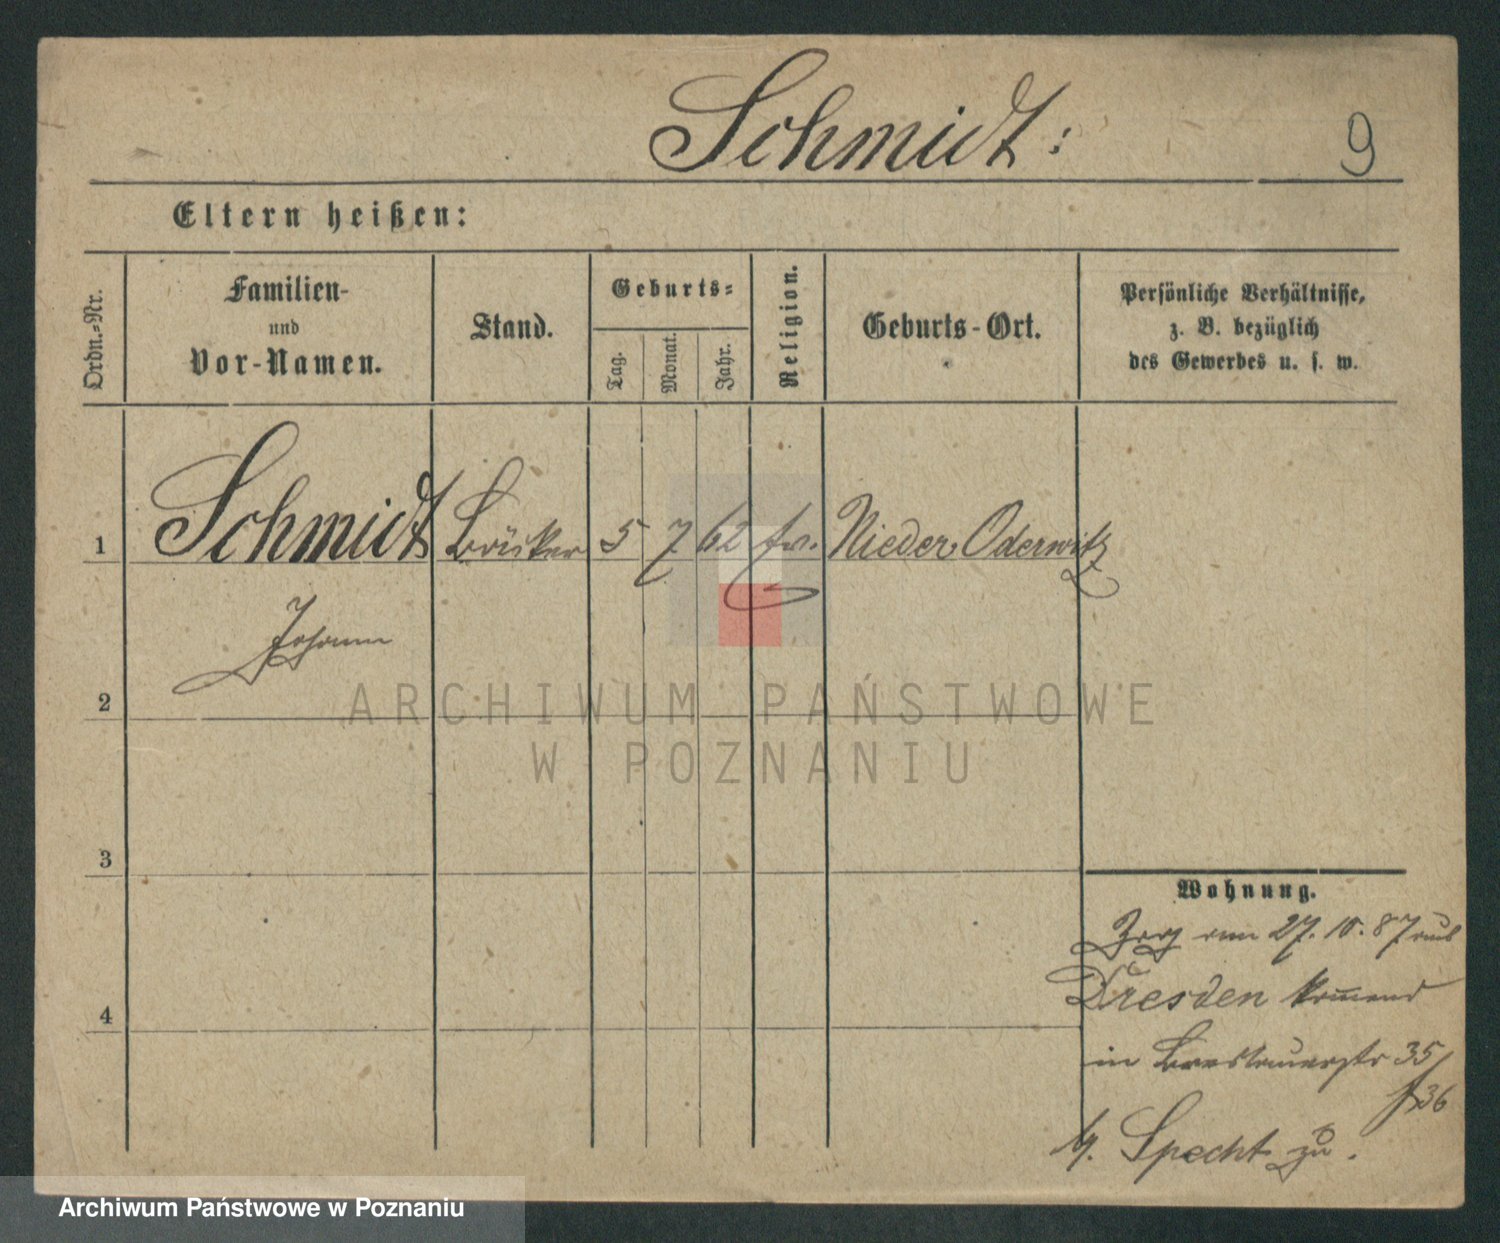 Schmidt:
9
Eltern heißen:
Ordn.-Nr.
Familien-
und
Vor-Namen.
Stand.
Geburts-
Tag.
Monat.
Jahr.
Religion.
Geburts-Ort.
Persönliche Verhältnisse,
z. B. bezüglich
des Gewerbes u. s. w.
1
Schmidt
5
7
62
Nieder Oderwitz
Johann
2
3
4
Wohnung.
Zog am 27. 10. 87 aus
Dresden kommend
in Breslauerstr 35/
36
b. Specht zu.
ARCHIWUM PAŃSTWOWE
W POZNANIU
Archiwum Państwowe w Poznaniu